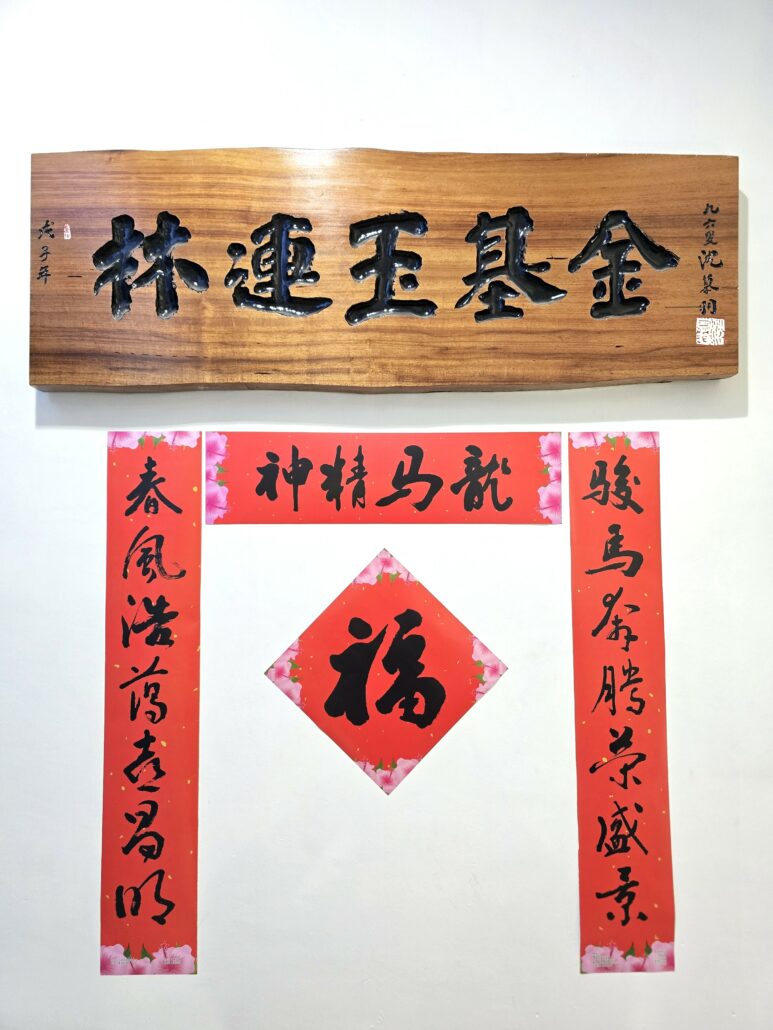 林連玉基金
戊子年
九六叟沈慕羽
龍马精神
骏馬奔腾荣盛景
春風浩蕩喜昌明
福